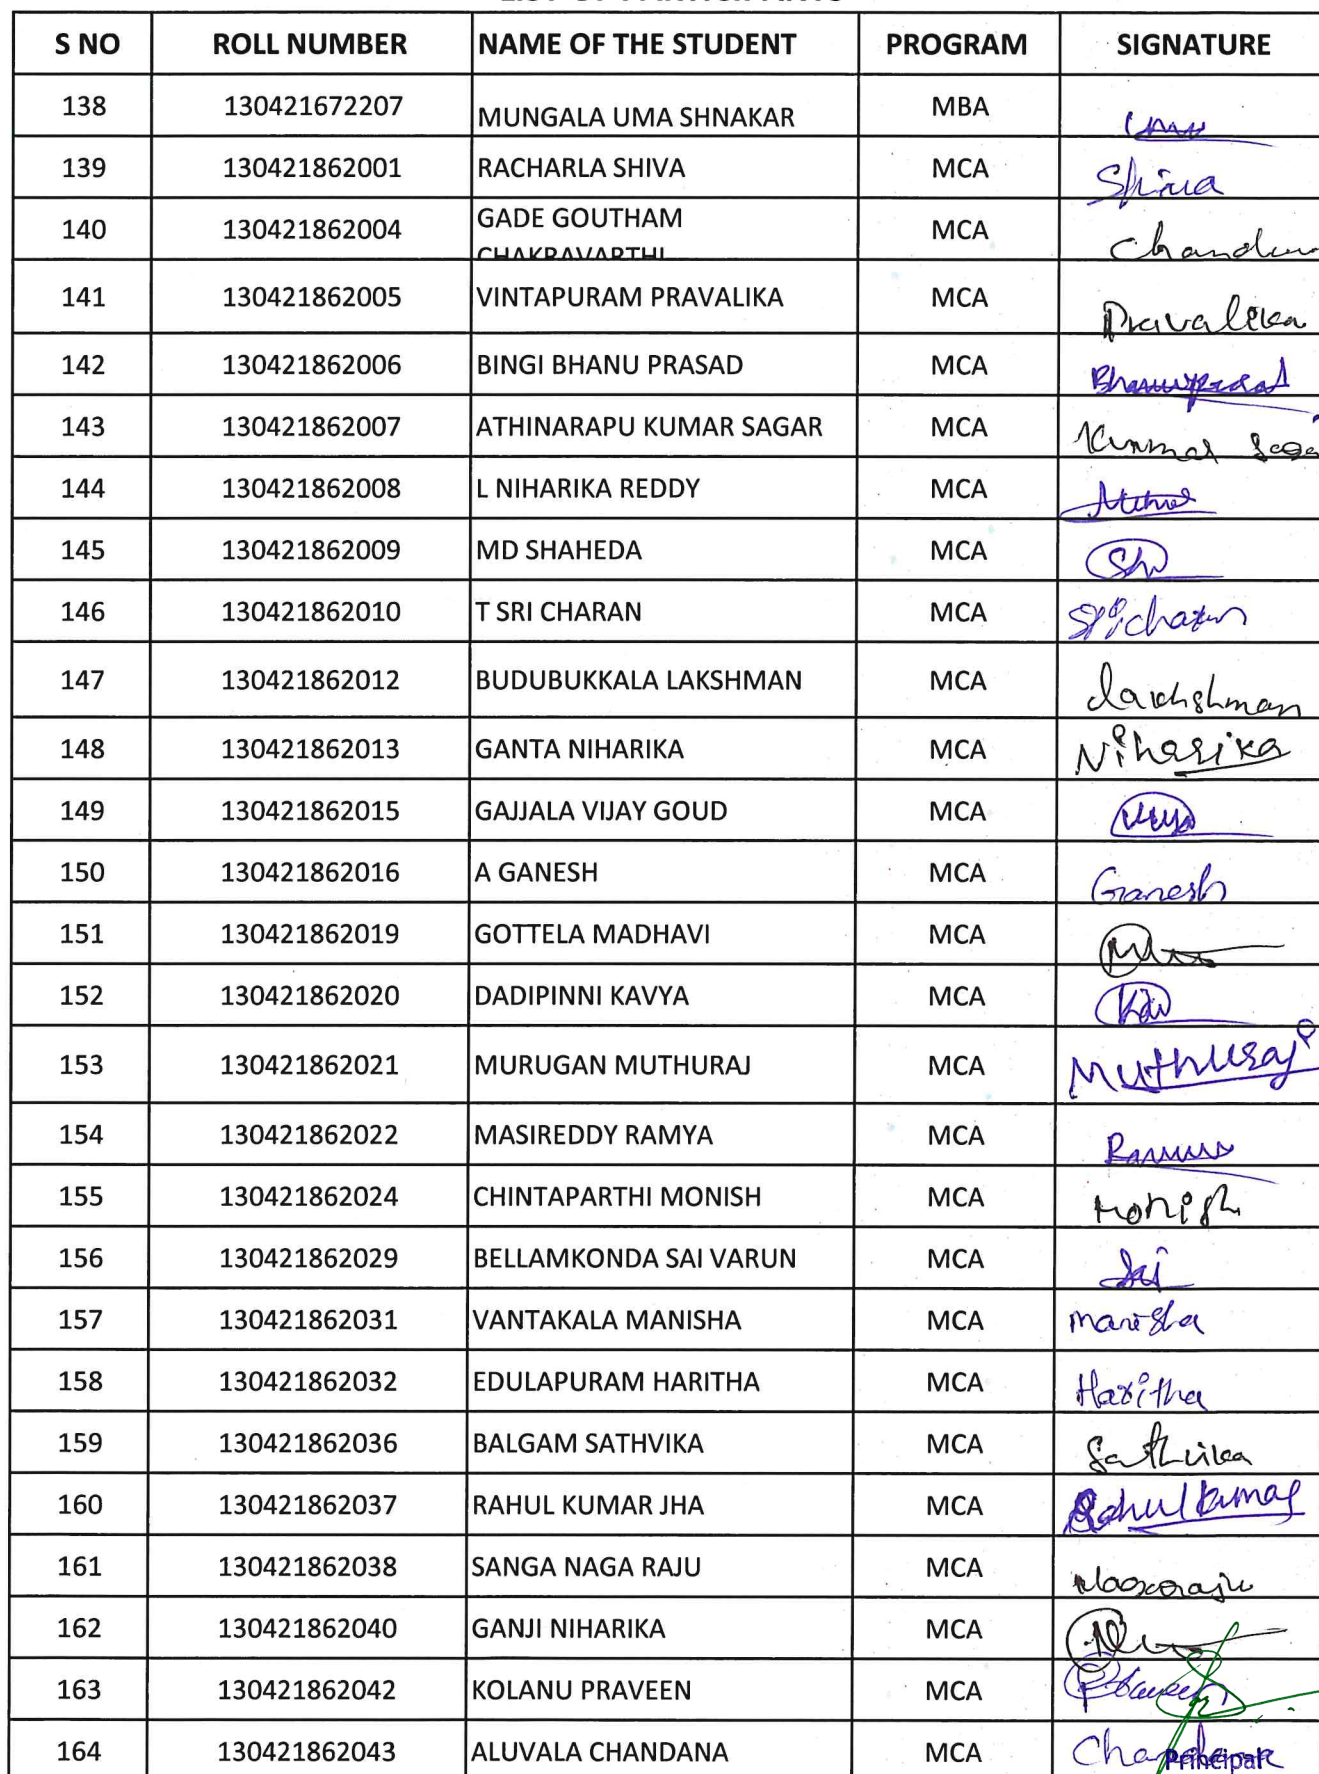 S NO ROLL NUMBER NAME OF THE STUDENT PROGRAM SIGNATURE
138 130421672207 MUNGALA UMA SHNAKAR MBA
139 130421862001 RACHARLA SHIVA MCA Shiva
140 130421862004 GADE GOUTHAM
CHAKRAVARTHI MCA
141 130421862005 VINTAPURAM PRAVALIKA MCA Pravalika
142 130421862006 BINGI BHANU PRASAD MCA Bhanuprasad
143 130421862007 ATHINARAPU KUMAR SAGAR MCA Kummar
144 130421862008 L NIHARIKA REDDY MCA
145 130421862009 MD SHAHEDA MCA Sh
146 130421862010 T SRI CHARAN MCA Sricharan
147 130421862012 BUDUBUKKALA LAKSHMAN MCA Lakhshman
148 130421862013 GANTA NIHARIKA MCA Niharika
149 130421862015 GAJJALA VIJAY GOUD MCA
150 130421862016 A GANESH MCA Ganesh
151 130421862019 GOTTELA MADHAVI MCA
152 130421862020 DADIPINNI KAVYA MCA Kav
153 130421862021 MURUGAN MUTHURAJ MCA Muthuraj
154 130421862022 MASIREDDY RAMYA MCA
155 130421862024 CHINTAPARTHI MONISH MCA Monish
156 130421862029 BELLAMKONDA SAI VARUN MCA Sai
157 130421862031 VANTAKALA MANISHA MCA Manisha
158 130421862032 EDULAPURAM HARITHA MCA Haritha
159 130421862036 BALGAM SATHVIKA MCA Sathvika
160 130421862037 RAHUL KUMAR JHA MCA Rahul Kumar
161 130421862038 SANGA NAGA RAJU MCA
162 130421862040 GANJI NIHARIKA MCA
163 130421862042 KOLANU PRAVEEN MCA Praveen
164 130421862043 ALUVALA CHANDANA MCA
Principal